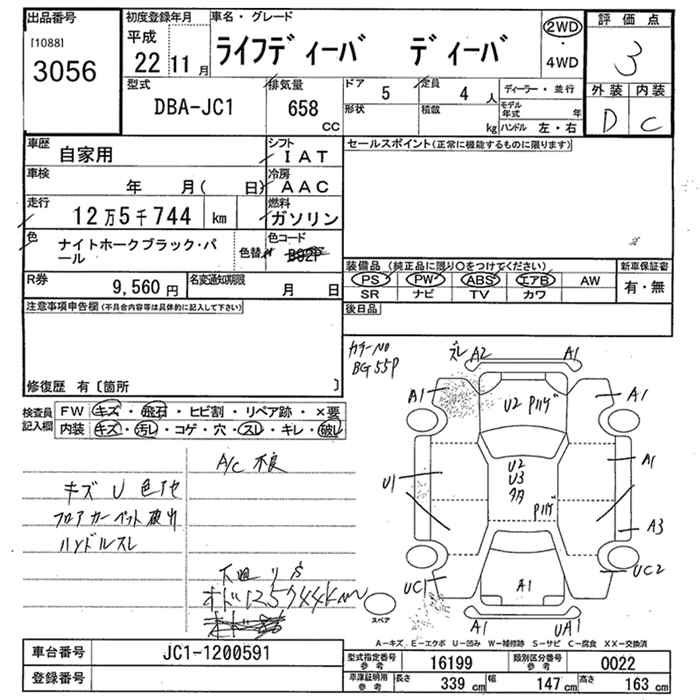 出品番号
[1088]
3056
初度登録年月
平成
22 11 月
車名・グレード
ライフディーバ ディーバ
2WD
・
4WD
評価点
3
外装 内装
D C
型式
DBA-JC1
排気量
658
CC
ドア
5
定員
4 人
形状
積載
kg
ディーラー・並行
モデル年式 年
ハンドル 左・右
車歴
自家用
シフト
IAT
車検
年 月( 日)
冷房
AAC
走行
12万5千744 km
燃料
ガソリン
色
ナイトホークブラック・パール
色替
色コード
R券
9,560 円
名変通知期限
月 日
セールスポイント(正常に機能するものに限ります)
装備品 (純正品に限り〇をつけてください)
PS PW ABS エアB AW
SR ナビ TV カワ
新車保証書
有・無
後日品
注意事項申告欄(不具合内容等は具体的に記入して下さい)
修復歴 有〔箇所 〕
検査員
記入欄
FW キズ・飛石・ヒビ割・リペア跡・×要
内装 キズ・汚レ・コゲ・穴・スレ・キレ・破レ
A/C 不良
キズ U 色アセ
フロアカーペット破れ
ハンドルスレ
下廻りS
オド125744km
カラーNO
BG55P
ズレ A2 A1
A1 A1
U2 Pハゲ
U1 A1
U2
U3
Pハゲ
A3
UC1 UC2
A1
A1 UA1
スペア
A-キズ E-エクボ U-凹み W-補修跡 S-サビ C-腐食 XX-交換済
車台番号
JC1-1200591
登録番号
型式指定番号
参考
16199
類別区分番号
参考
0022
車庫証明用
参考
長さ 339 cm 幅 147 cm 高さ 163 cm